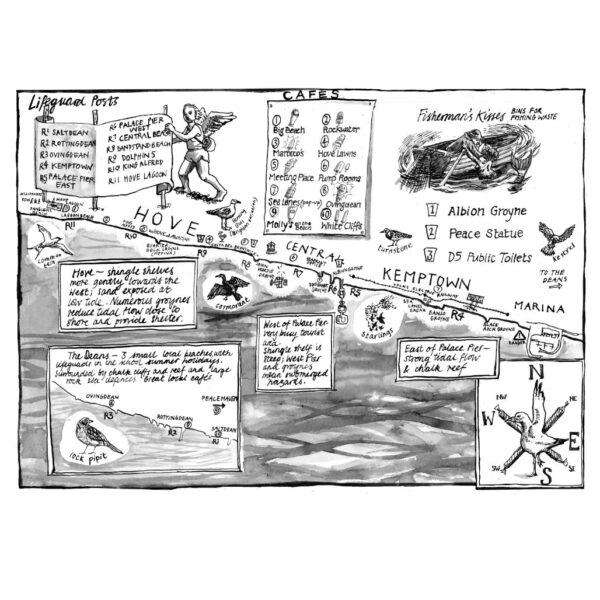 Lifeguard Posts
R1 SALTDEAN
R2 ROTTINGDEAN
R3 OVINGDEAN
R4 KEMPTOWN
R5 PALACE PIER
EAST
R6 PALACE PIER
WEST
R7 CENTRAL BEACH
R8 BANDSTAND BEACH
R9 DOLPHINS
R10 KING ALFRED
R11 HOVE LAGOON
CAFES
1 Big Beach
2 Rockwater
3 Marrocco's
4 Hove Lawns
5 Meeting Place
6 Pump Rooms
7 Sea Lanes
8 Ovingdean
9 Molly's on the Beach
10 White Cliffs
Fisherman's Kisses
BINS FOR
FISHING WASTE
1 Albion Groyne
2 Peace Statue
3 D5 Public Toilets
turnstone
kestrel
TO THE
DEANS
HOVE
CENTRAL
KEMPTOWN
MARINA
LAGOON
R11
R10
R9
R8
R7
R6
R5
R4
BANJO
GROYNE
BLACK ROCK GROYNE
DANGER
common tern
cormorant
starlings
Hove – shingle shelves
more gently towards the
west; sand exposed at
low tide. Numerous groynes
reduce tidal flow close to
shore and provide shelter.
West of Palace Pier-
very busy tourist
and
Shingle shelf is
steep; West Pier
and groynes
mean submerged
hazards.
East of Palace Pier-
strong tidal flow
& chalk reef
The Deans – 3 small local beaches with
lifeguards in the school summer holidays.
Surrounded by chalk cliffs and reef and large
rock sea defences Great local cafés
OVINGDEAN
R3
ROTTINGDEAN
R2
PEACEHAVEN
SALTDEAN
R1
rock pipit
N
NE
E
SE
S
SW
W
NW